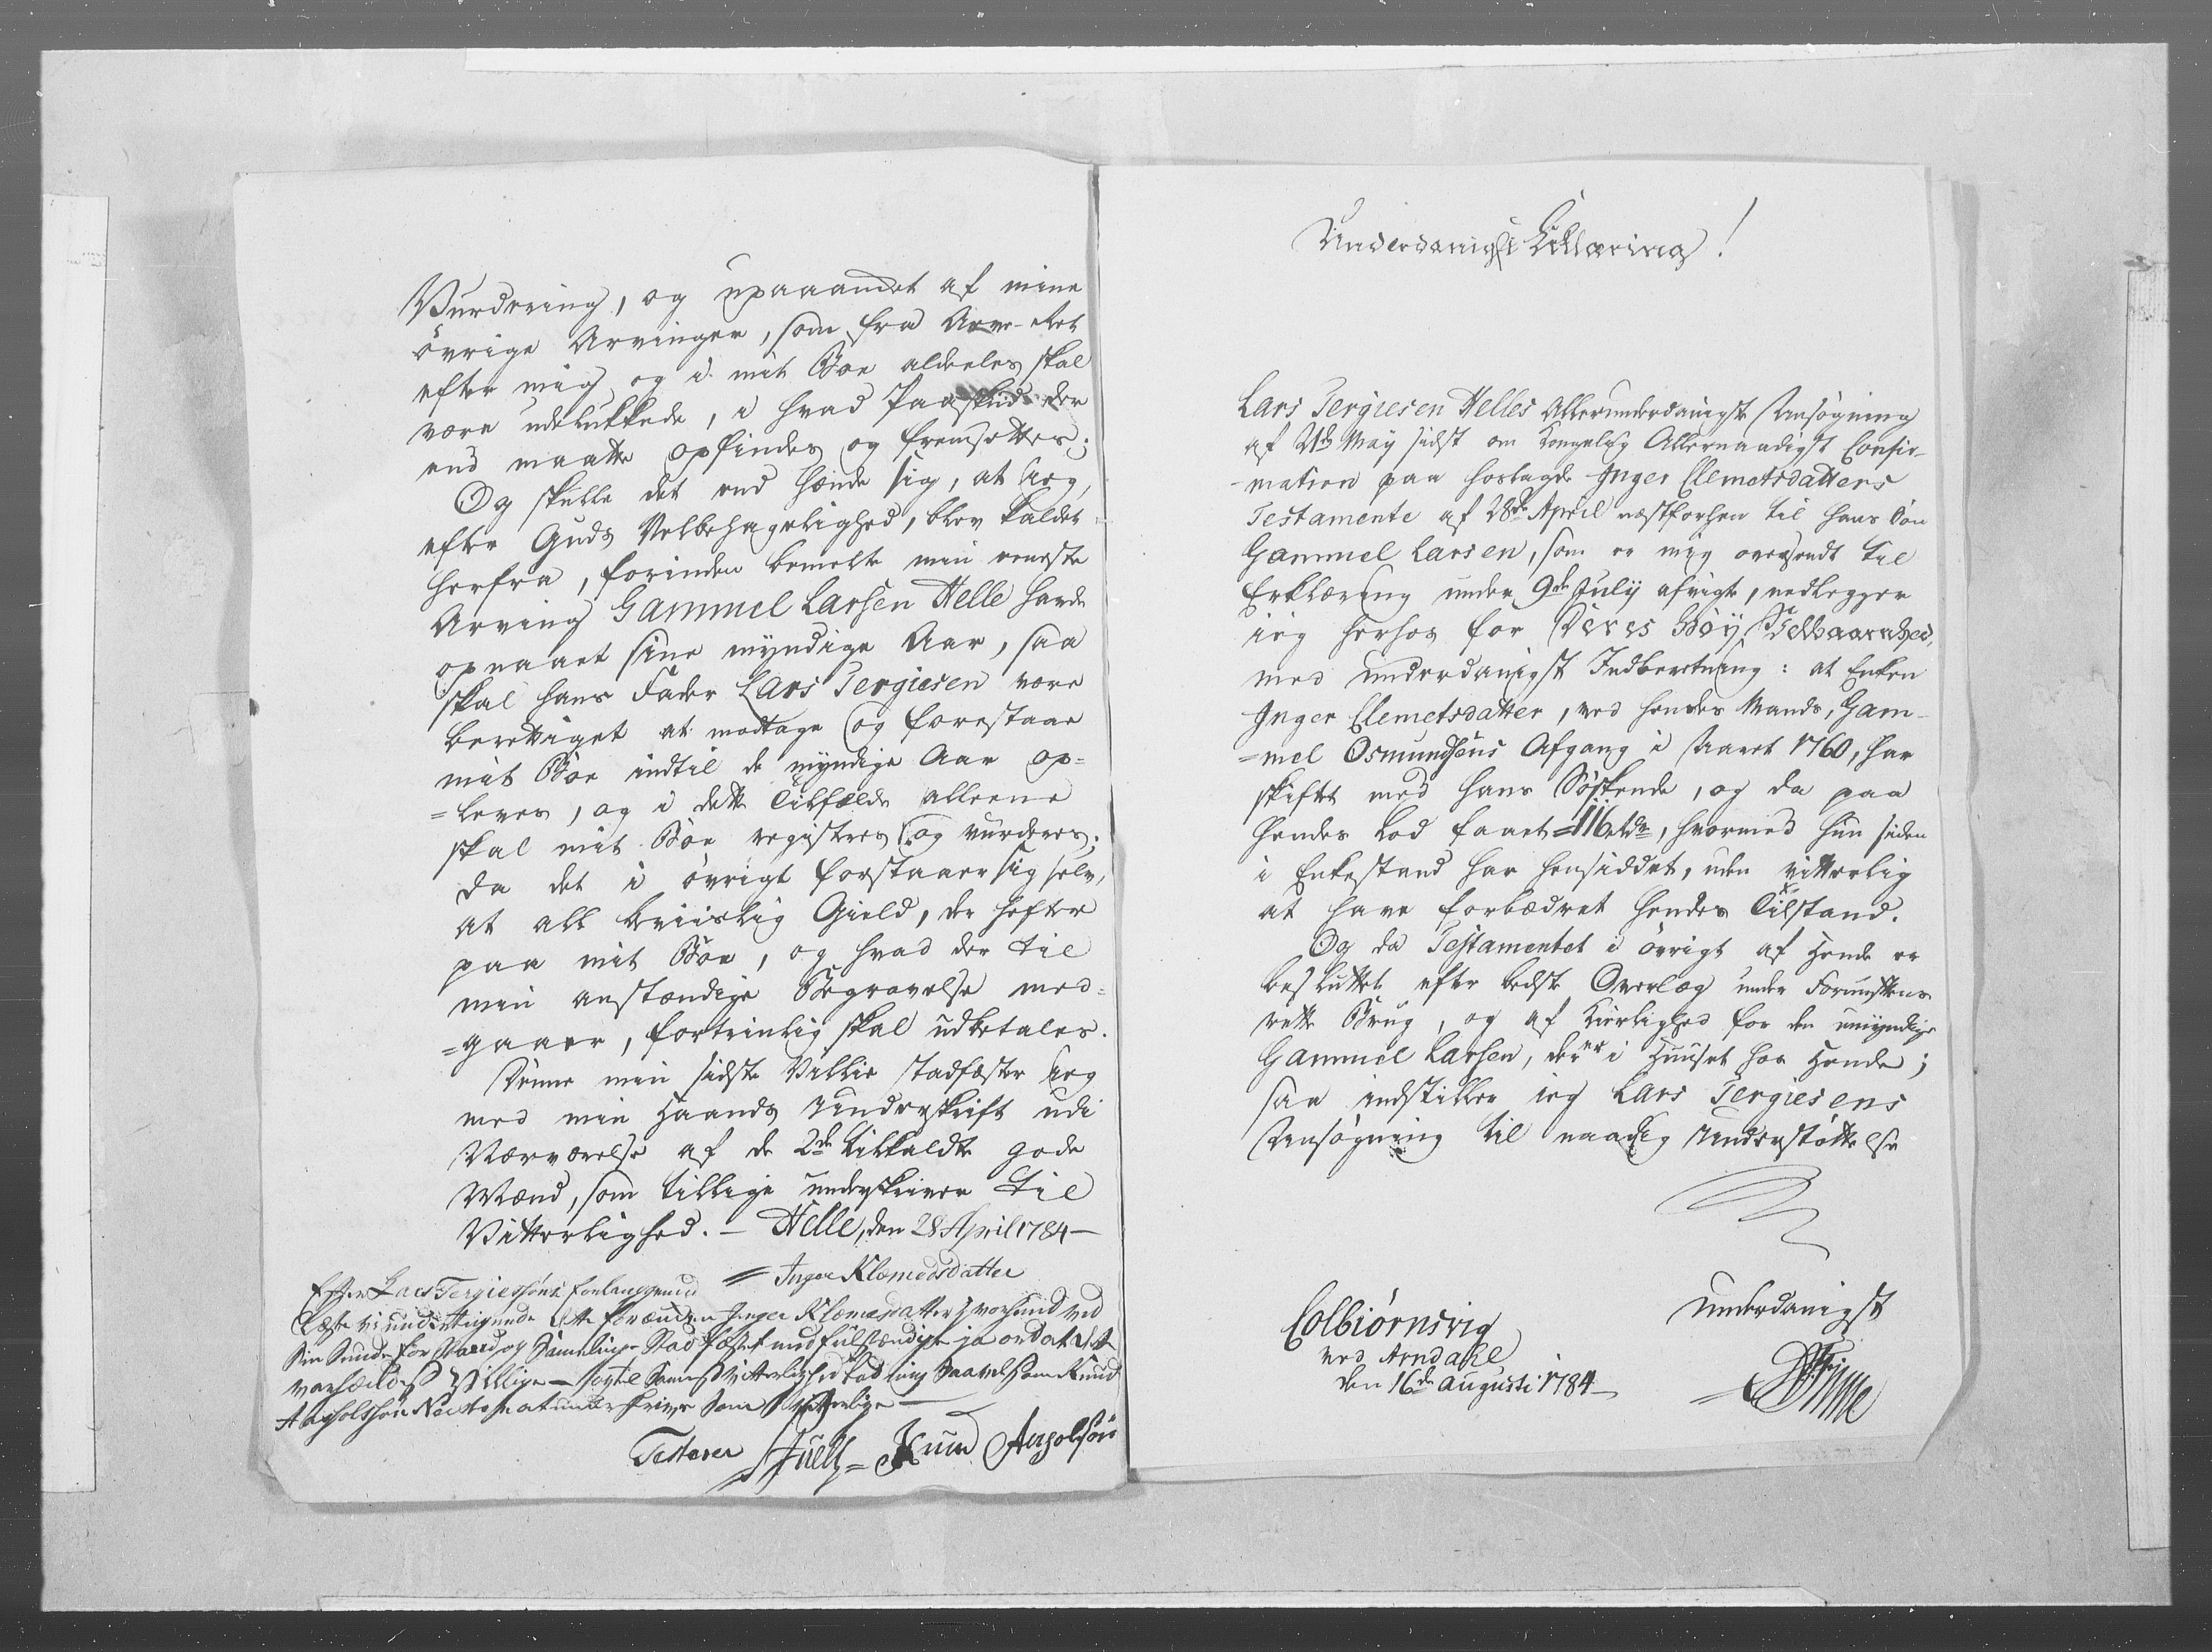 Vurdering, og upaaandet af mine
övrige Arvinger, som fra Arve-Ret
efter mig og i mit Boe aldeeles skal
være udelukkede, i hvad Paaskud der
end maatte opfindes og fremsættes;
Og skulle det end hænde sig, at Jeg,
efter Guds Velbehagelighed, blev kaldet
herfra, forinden bemelte min eeneste
Arving Gammel Larsen Helle havde
opnaaet sine myndige Aar, saa
skal hans Fader Lars Tergiesen være
berettiget at modtage og forestaae
mit Boe indtil de myndige Aar op=
=leves, og i dette Tilfælde alleene
skal mit Boe registres og vurderes;
da det i övrigt forstaaer sig selv,
at all beviislig Gield, der hefter
paa mit Boe, og hvad der til
min anstændige Begravelse med=
=gaaer, fortrinlig skal udbetales.
Denne min sidste Villie stadfæster Jeg
med min Haands Underskrift udi
Nærværelse af de 2de tilkaldte gode
Mænd, som tillige underskriver til
Vitterlighed. — Helle, den 28 April 1784 —
= Inger Klemedsdatter
Efter Lars Tergiessöns forlangende
læste vi undertegnede dette for Encken Inger Klemedsdatter hvorhun ved
Sin Sunde forstand og Samtlige Stadfæstet med fuldstændige ja ord at det
var hændes Villige — og til Samme Vitterlighed lod mig saavelsom Knud
underskrive Som Vitterlige —
Testerer Juell = Knud Aasolsön
Underdanigst Erklæring!
Lars Tergiesen Helles Allerunderdanigste Ansögning
af 21de Maÿ sidst om Kongelig Allernaadigst Confir-
-mation paa hoslagde Inger Clemetsdatters
Testamente af 28de April næstforhen til hans Sön
Gammel Larsen, som er mig oversendt til
Erklæring under 9de Julÿ afvigt, nedlegger
ieg herhos for Deres Höÿ Velbaarenhed,
med underdanigst Indberetning: at Enken
Inger Clemetsdatter, ved hendes Mands, Gam-
=mel Osmundsens Afgang i Aaret 1760, har
skiftet med hans Söskende, og da paa
hendes Lod faaet = 116 rdr, hvormed hun siden
i Enkestand har hensiddet, uden vitterlig
at have forbædret hendes Tilstand.
Og da Testamentet i övrigt af Hende er
besluttet efter bedste Overlæg under Fornuftens
rette Brug, og af Kierlighed for den umÿndige
Gammel Larsen, der er i Huuset hos Hende;
saa indstiller ieg Lars Tergiesens
Ansögning til naadig Understöttelse
Underdanigst
Colbiörnsvig
ved Arndahl
den 16de Augusti 1784 —